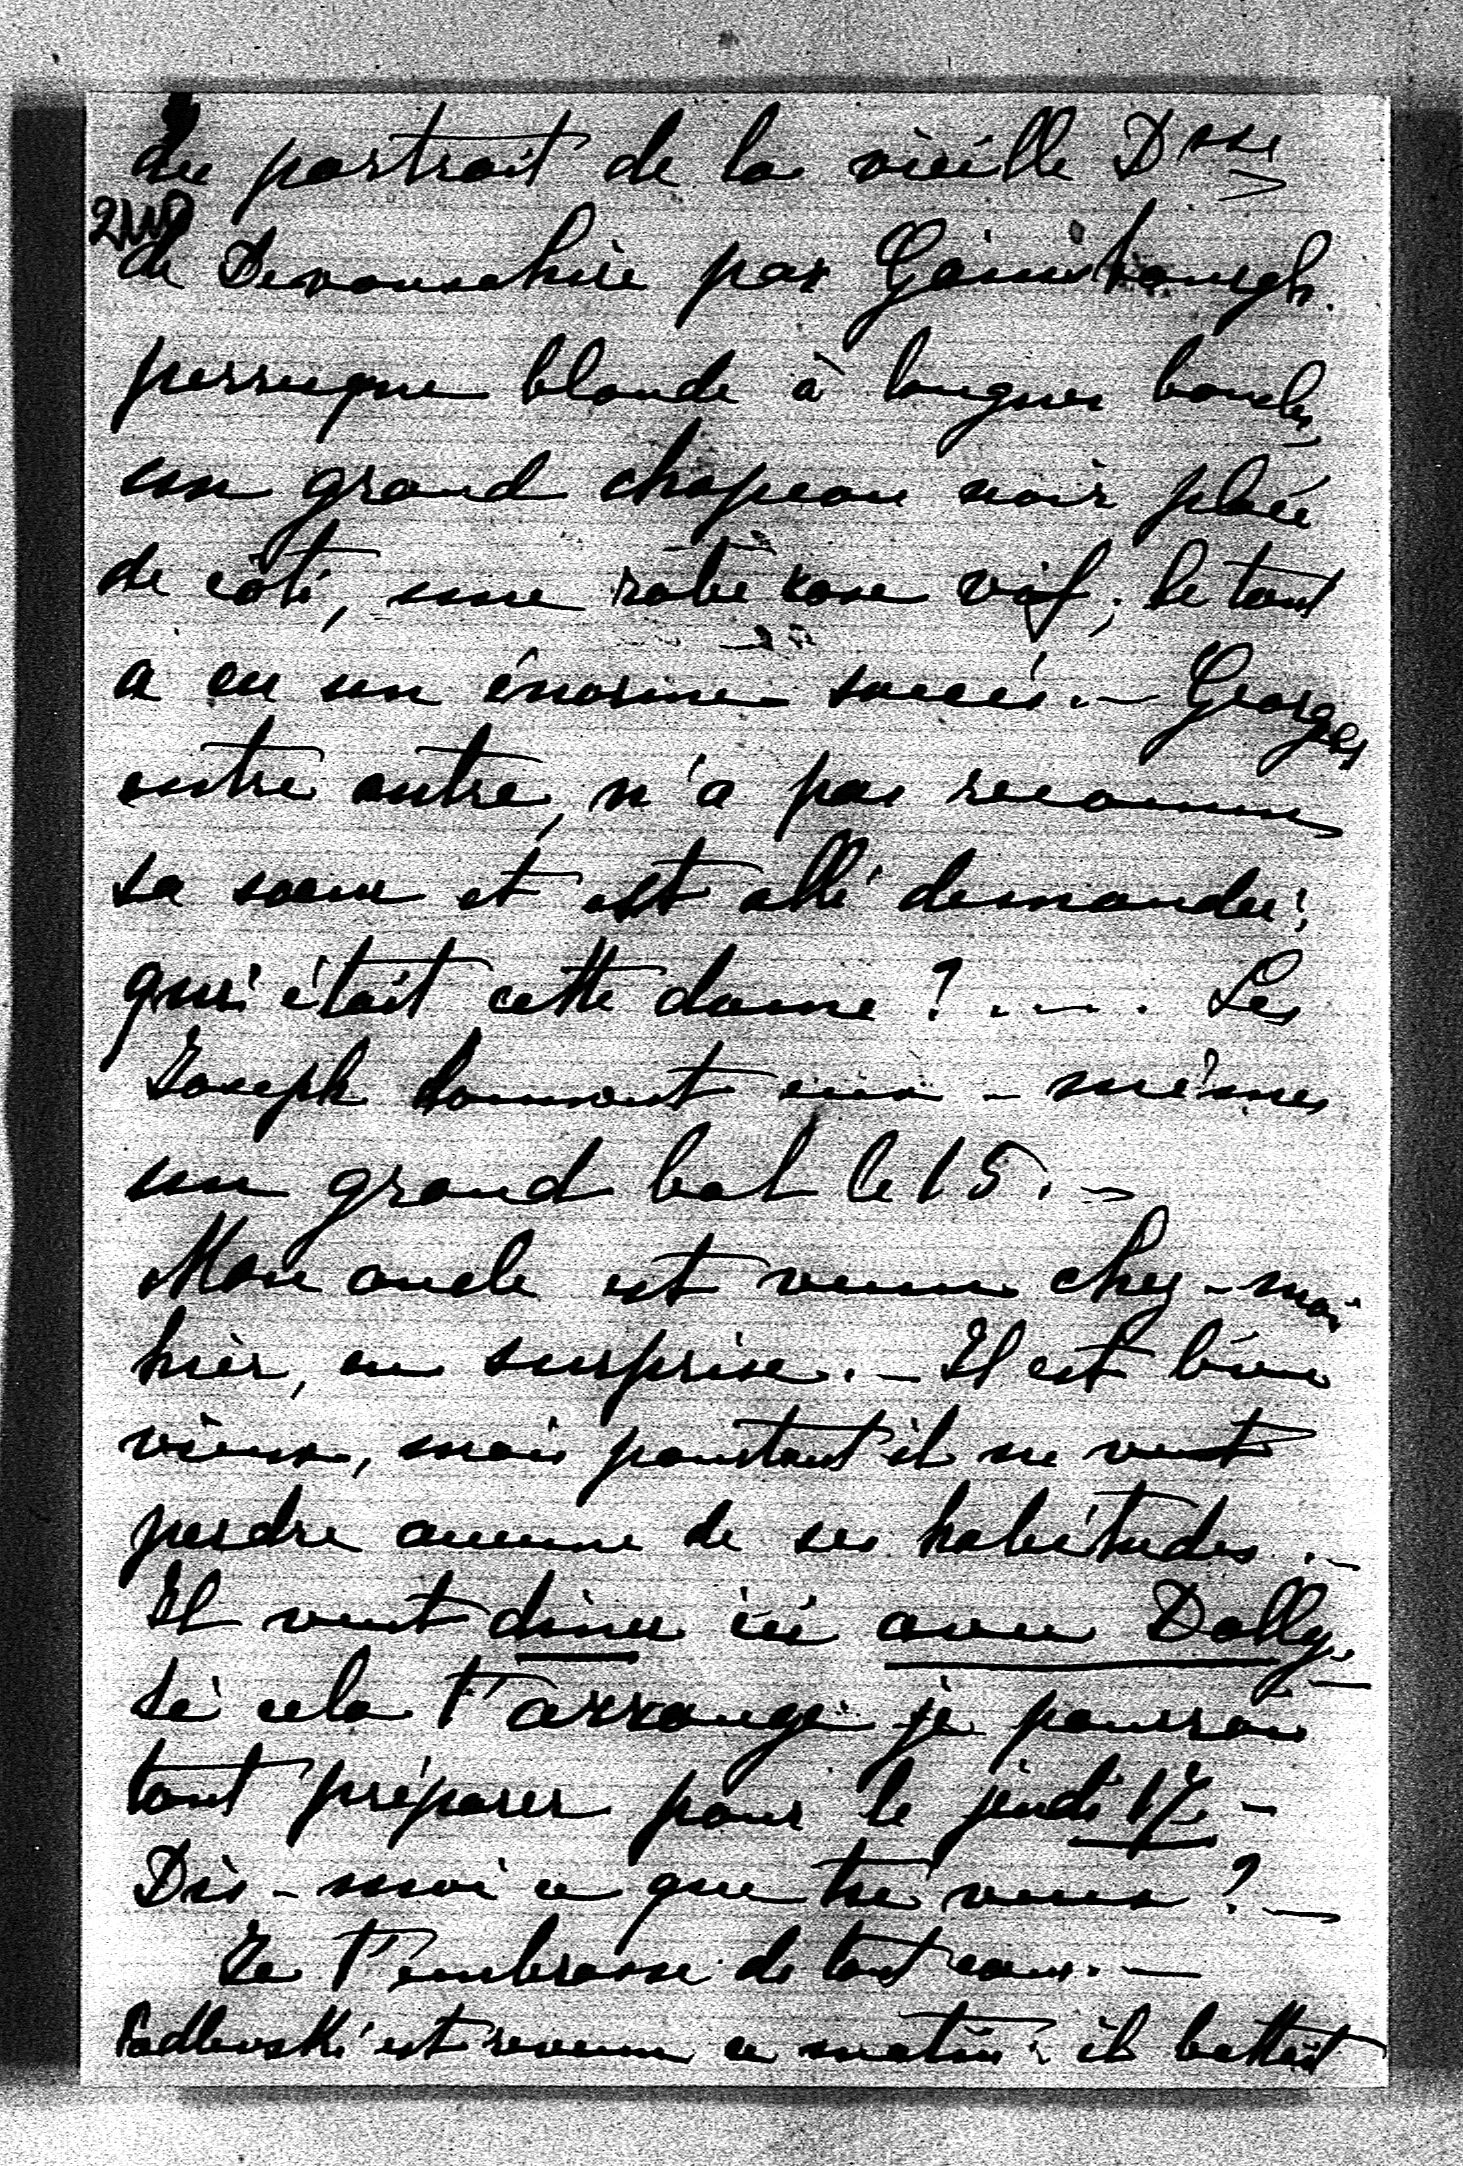 du portrait de la vieille Dsse
2
de Devonschire par Gainsborough.
perruque blonde à longues boucles
un grand chapeau noir placé
de côté, une robe rose vif; le tout
a eu un énorme succès. — Georges
entre autre, n'a pas reconnu
sa soeur et est allé demander:
qui était cette dame? .... Les
Joseph donnent eux-mêmes
un grand bal le 15. —
Mon oncle est venu chez-moi
hier, en surprise. — Il est bien
vieux, mais pourtant il ne veut
perdre aucune de ses habitudes. —
Il veut dîner ici avec Dolly. —
Si cela t'arrange je pourrai
tout préparer pour le jeudi 17 —
Dis-moi ce que tu veux? —
Je t'embrasse de tout coeur. —
Podlevski est revenu ce matin: il battait